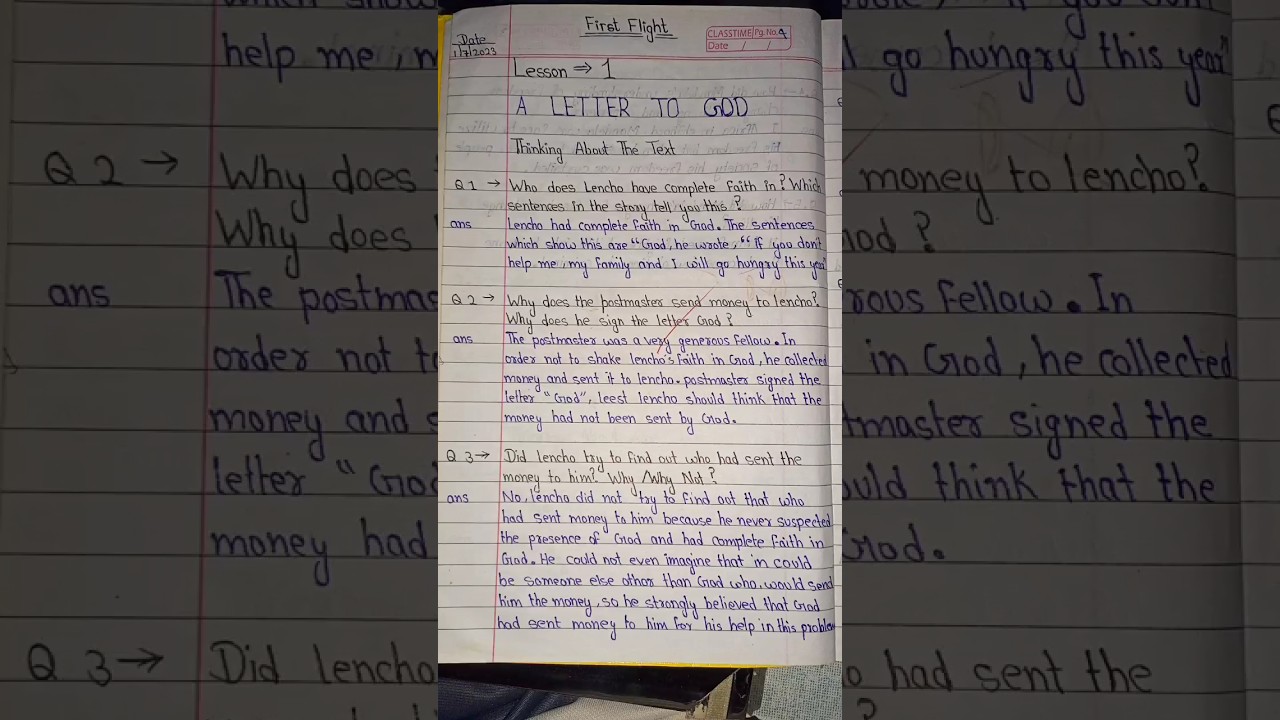 First Flight
CLASSTIME Pg. No. 4
Date / /
Date
1/7/2023
Lesson ⇒ 1
A LETTER TO GOD
Thinking About The Text
Q 1 → Who does Lencho have complete faith in? Which
sentences in the story tell you this ?
ans Lencho had complete faith in God. The sentences
which show this are "God, he wrote, "If you don't
help me, my family and I will go hungry this year"
Q 2 → Why does the postmaster send money to lencho?
Why does he sign the letter God ?
ans The postmaster was a very generous fellow. In
order not to shake lencho's faith in God, he collected
money and sent it to lencho. postmaster signed the
letter "God", leest lencho should think that the
money had not been sent by God.
Q 3 → Did lencho try to find out who had sent the
money to him? Why /Why Not ?
ans No, lencho did not try to find out that who
had sent money to him because he never suspected
the presence of God and had complete faith in
God. He could not even imagine that in could
be someone else other than God who would send
him the money, so he strongly believed that God
had sent money to him for his help in this problem